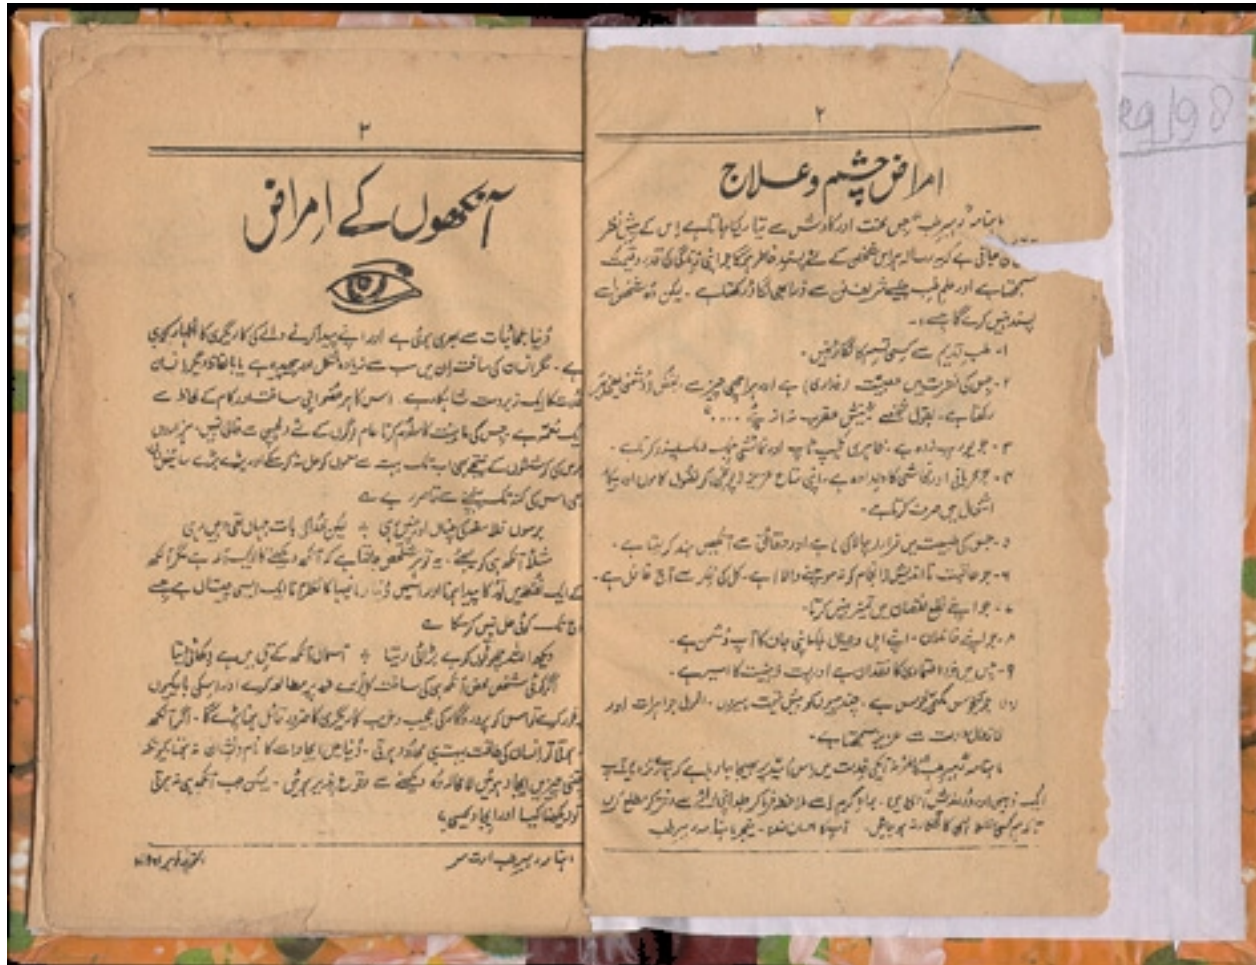 ۲
امراض چشم و علاج
ماہنامہ "رہبر طب" جس محنت اور کاوش سے تیار کیا جاتا ہے اس کے پیش نظر
ہے کہ یہ رسالہ ہر اس شخص کے لئے پسند خاطر ہوگا جو اپنی زندگی کی قدر و قیمت
سمجھتا ہے اور علم طب جیسے شریف فن سے ذرا بھی لگاؤ رکھتا ہے ۔ لیکن وہ شخص اسے
پسند نہیں کرے گا جسے :۔
۱۔ طب قدیم سے کسی قسم کا لگاؤ نہیں ۔
۲۔ جس کی فطرت میں (غداری) ہے اور ہر اچھی چیز سے
رکھتا ہے ۔ بقول شخصے نیش عقرب نہ از پئے ....
۳۔ جو یورپ زدہ ہے ۔ ظاہری ٹیپ ٹاپ اور نمائشی
۴۔ جو عریانی اور فحاشی کا دلدادہ ہے ، اپنی متاع عزیز کو فضول کاموں
میں صرف کرتا ہے ۔
۵۔ جس کی طبیعت میں ہے اور حقائق سے آنکھیں بند کر لیتا ہے ۔
۶۔ جو عاقبت نا اندیش (انجام کو نہ سوچنے والا) ہے ۔ کل کی فکر سے آج غافل ہے ۔
۷۔ جو اپنے نفع نقصان میں تمیز نہیں کرتا ۔
۸۔ جو اپنے خاندان ۔ اپنے اہل و عیال بلکہ اپنی جان کا آپ دشمن ہے ۔
۹۔ جس میں خود اعتمادی کا فقدان ہے اور پست ذہنیت کا اسیر ہے ۔
۱۰۔ جو کنجوس مکھی چوس ہے ۔ چند پیسوں کو بیش قیمت ہیروں ۔ انمول جواہرات اور
سے عزیز سمجھتا ہے ۔
ماہنامہ "رہبر طب" کا آپکی خدمت میں اس امید پر بھیجا جا رہا ہے کہ
ایک ذہین اور دور اندیش آدمی ہیں ۔ براہ کرم اسے ملاحظہ فرما کر سے دفتر کو مطلع کریں
تاکہ ہم کسی غلط فہمی کا شکار نہ ہو جائیں ۔ منیجر ماہنامہ رہبر طب
۳
آنکھوں کے امراض
دنیا عجائبات سے بھری ہوئی ہے اور اپنے پیدا کرنے والے کی کاریگری کا اظہار کر رہی
ہے ۔ مگر انسان کی ساخت ان میں سب سے زیادہ مشکل اور پیچیدہ ہے یا بالفاظ دیگر انسان
قدرت کا ایک زبردست شاہکار ہے ۔ اس کا ہر عضو اپنی ساخت اور کام کے لحاظ سے
ایک معمہ ہے ، جس کی ماہیت کا معلوم کرنا عام لوگوں کے لئے دلچسپی سے خالی نہیں ، ہزاروں
برس کی کوششوں کے نتیجے بھی اب تک بہت سے معموں کو حل نہ کر سکے اور بڑے بڑے سائنس
بھی اس کی کنہ تک پہنچنے سے قاصر رہے ؎
برسوں فلاسفر کی چناں اور چنیں رہی ٭ لیکن خدا کی بات جہاں تھی وہیں رہی
مثلاً آنکھ ہی کو لیجئے ۔ یہ تو ہر شخص جانتا ہے کہ آنکھ دیکھنے کا ایک آلہ ہے مگر آنکھ
کے ایک نقطے میں نور کا پیدا ہونا اور اس میں دنیا و مافیہا کا نظر آنا ایک ایسی چیستاں ہے جسے
آج تک کوئی حل نہیں کر سکا ؎
دیکھ اللہ چھوٹوں کو ہے بڑائی دیتا ٭ آسماں آنکھ کے تل میں ہے دکھائی دیتا
اگر کوئی شخص محض آنکھ ہی کی ساخت کا پورے طور پر مطالعہ کرے اور اسکی باریکیوں
پر غور کرے تو اس کو پروردگار کی عجیب و غریب کاریگری کا ضرور قائل ہونا پڑے گا ۔ اگر آنکھ
نہ ہوتی تو انسان کی طاقت بہت ہی محدود ہوتی ، دنیا میں ایجادات کا نام و نشان نہ ہوتا کیونکہ
جتنی چیزیں ایجاد ہوئیں لامحالہ وہ دیکھنے سے وقوع پذیر ہوئیں ۔ لیکن جب آنکھ ہی نہ ہوتی
تو دیکھنا کیسا اور ایجاد کیسی ؟
ماہنامہ رہبر طب امرت سر